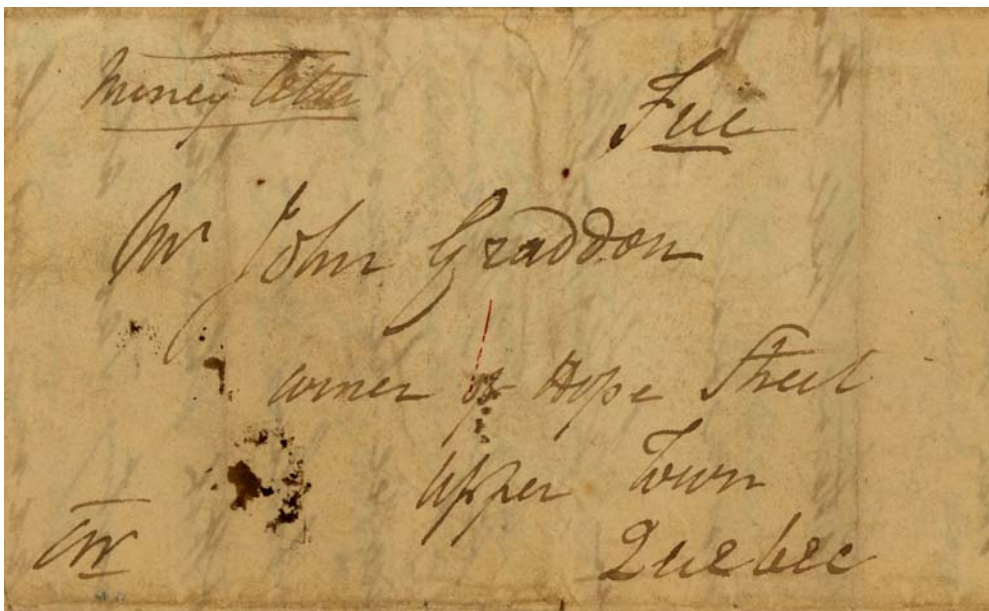 Money letter
Free
Mr John Graddon
corner of Hope Street
Upper Town
Quebec